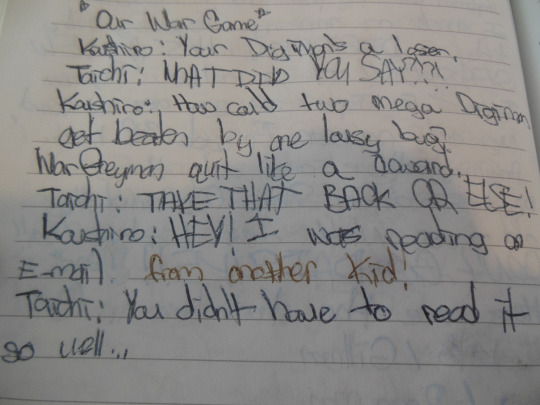 "Our War Game"
Kaishiro: Your Digimon's a loser.
Taichi: WHAT DID YOU SAY?!?!
Kaishiro: How could two mega Digimon
get beaten by one lousy bug?
WarGreymon quit like a coward.
Taichi: TAKE THAT BACK OR ELSE!
Kaishiro: HEY! I was reading an
E-mail! from another kid!
Taichi: You didn't have to read it
so well...